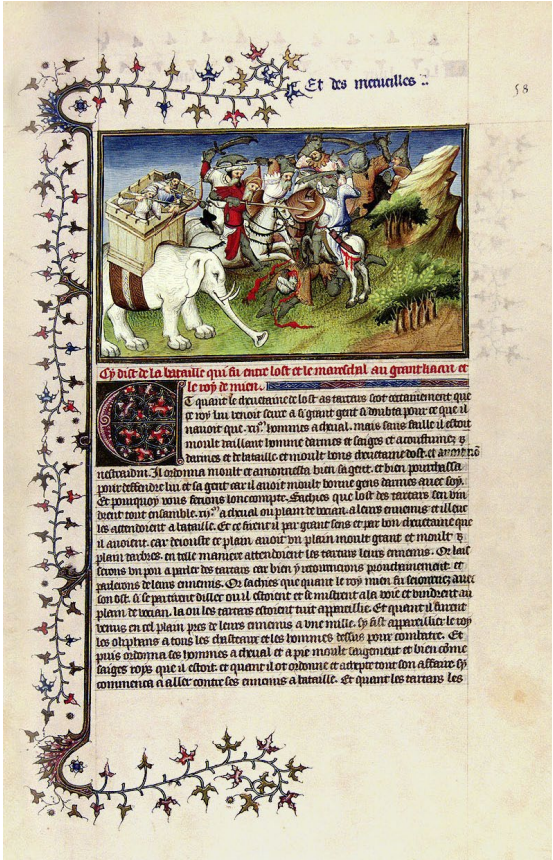 Et des merueilles
58
Cy dist de la bataille qui fu entre lost et le mareschal au grant kaan et
le roy de mien.
Et quant le cheuetaine de lost as tartars scot certainement que
ce roy lui venoit seure a si grant gent si doubta pour ce que il
nauoit que .xij. hommes a cheual. mais sanz faille il estoit
moult vaillant homme darmes et saiges et acoustumez
darmes et de bataille et moult bons cheuetaine dost. et auoit nõ
nescradin. Il ordonna moult et amonnesta bien sa gent. et bien pourchassa
pour deffendre lui et sa gent car il auoit moult bonne gens darmes auec soy.
Et pourquoy vous ferons lonc compte. Saches que lost des tartars sen vin
drent tout ensemble .xij. a cheual ou plain de vocian. a leurs ennemis et illeuc
les attendirent a bataille. Et ce firent il par grant sens et par bon cheuetaine que
il auoient. car decouste ce plain auoit vn plain moult grant et moult
plain darbres. en telle maniere attendoient les tartars leurs ennemis. Or lais
serons vn pou a parler des tartars car bien y retournerons prouchainement. et
parlerons de leurs ennemis. Or sachies que quant le roy mien fu seiournez auec
son ost. si se partirent dillec ou il estoient et se mistrent a la voie et vindrent au
plain de vocian. la ou les tartars estoient tuit appareillie. Et quant il furent
venus en cel plain pres de leurs ennemis a vne mille. sy fist appareillier le roy
les oliphans a tous les chasteaux et les hommes dessus pour combatre. Et
puis ordonna ses hommes a cheual et a pie moult saigement et bien cõme
saiges roys que il estoit. et quant il ot ordonne et adrepte tout son affaire. sy
commenca a aller contre ses ennemis a bataille. Et quant les tartars les